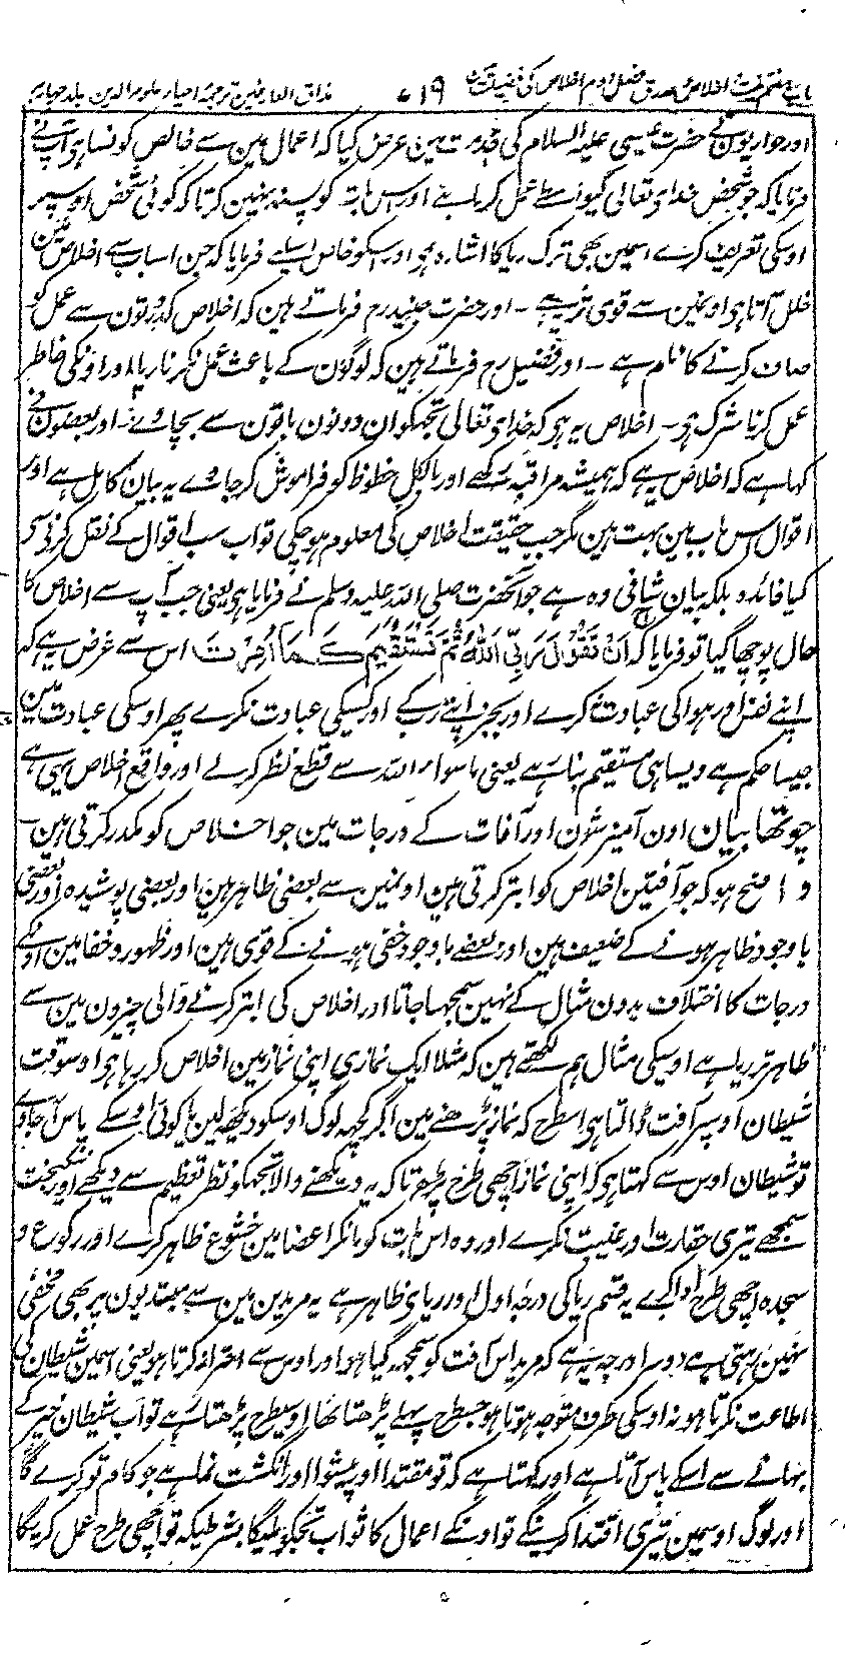 باب ہفتم نیت اخلاص صدق فصل دوم اخلاص کی فضیلت ۶۱۹ مذاق العارفین ترجمہ احیاء علوم الدین جلد چہارم
اور حواریون نے حضرت عیسی علیہ السلام کی خدمت مین عرض کیا کہ اعمال مین سے خالص کونسا ہو آپنے
فرمایا کہ جو شخص خدای تعالی کیواسطے عمل کرے اور اس بات کو پسند نہین کرتا کہ کوئی شخص اوسپر
اوسکی تعریف کرے اسمین بھی ترک ریا کا اشارہ ہو اور اسکو خاص اسلیے فرمایا کہ جن اسباب سے اخلاص مین
خلل آتا ہی اونمین سے قوی تر یہ ہے ۔ اور حضرت جنیدرح فرماتے ہین کہ اخلاص کدورتون سے عمل کو
صاف کرنے کا نام ہے ۔ اور فضیل رح فرماتے ہین کہ لوگون کے باعث عمل نکرنا ریا اور اونکی خاطر
عمل کرنا شرک ہی ۔ اخلاص یہ ہو کہ خدای تعالی تجھکو ان دونون باتون سے بچاوے ۔ اور بعضون نے
کہا ہے کہ اخلاص یہ ہے کہ ہمیشہ مراقبہ رکھے اور بالکل حظوظ کو فراموش کر جاوے یہ بیان کامل ہے اور
اقوال اس باب مین بہت ہین مگر جب حقیقت اخلاص کی معلوم ہو چکی تو اب سب اقوال کے نقل کرنے سے
کیا فائدہ بلکہ بیان شافی وہ ہے جو آنحضرت صلی اللہ علیہ وسلم نے فرمایا ہی یعنی جب آپ سے اخلاص کا
حال پوچھا گیا تو فرمایا کہ اَنْ تَقُوْلَ رَبِّیَ اللّٰہُ ثُمَّ تَسْتَقِیْمَ کَمَا اُمِرْتَ اس سے غرض یہ ہے کہ
اپنے نفس اور ہوا کی عبادت نکرے اور بجز اپنے رب کے اور کسیکی عبادت نکرے پھر اوسکی عبادت مین
جیسا حکم ہے ویسا ہی مستقیم بنا رہے یعنی ماسواء اللہ سے قطع نظر کرلے اور واقع اخلاص یہی ہے
چوتھا بیان اون آمیزشون اور آفات کے درجات مین جو اخلاص کو مکدر کرتی ہین
واضح ہو کہ جو آفتین اخلاص کو ابتر کرتی ہین اونمین سے بعضی ظاہر ہین اور بعضی پوشیدہ اور بعضی
باوجود ظاہر ہونے کے ضعیف ہین اور بعضے باوجود خفی ہونے کے قوی ہین اور ظہور و خفا مین اونکے
درجات کا اختلاف بدون مثال کے نہین سمجھا جاتا اور اخلاص کی ابتر کرنے والی چیزون مین سے
ظاہر تر ریا ہے اوسکی مثال ہم لکھتے ہین کہ مثلا ایک نمازی اپنی نماز مین اخلاص کر رہا ہو اوسوقت
شیطان اوسپر آفت ڈالتا ہی اسطرح کہ نماز پڑھنے مین اگر کچہ لوگ اوسکو دیکھ لین یا کوئی اوسکے پاس آجاوے
تو شیطان اوس سے کہتا ہو کہ اپنی نماز اچھی طرح پڑھ تا کہ یہ دیکھنے والا تجھکو نظر تعظیم سے دیکھے اور نیکبخت
سمجھے تیری حقارت اور غیبت نکرے اور وہ اس بات کو مانکر اعضا مین خشوع ظاہر کرے اور رکوع و
سجدہ اچھی طرح ادا کرے یہ قسم ریا کی درجہ اول اور ریای ظاہر ہے یہ مریدین مین سے مبتدیون پر بھی مخفی
نہین رہتی ہے دوسرا درجہ یہ ہے کہ مرید اس آفت کو سمجھ گیا ہو اور اوس سے احتراز کرتا ہو یعنی اسمین شیطان کی
اطاعت نکرتا ہو نہ اوسکی طرف متوجہ ہوتا ہو جسطرح پہلے پڑھتا تھا اوسیطرح پڑھتا رہے تو اب شیطان خیر کے
بہانے سے اسکے پاس آتا ہے اور کہتا ہے کہ تو مقتدا اور پیشوا اور انگشت نما ہے جو کام تو کرے گا
اور لوگ اوسمین تیری اقتدا کرینگے تو اونکے اعمال کا ثواب تجکو ملیگا بشرطیکہ تو اچھی طرح عمل کریگا